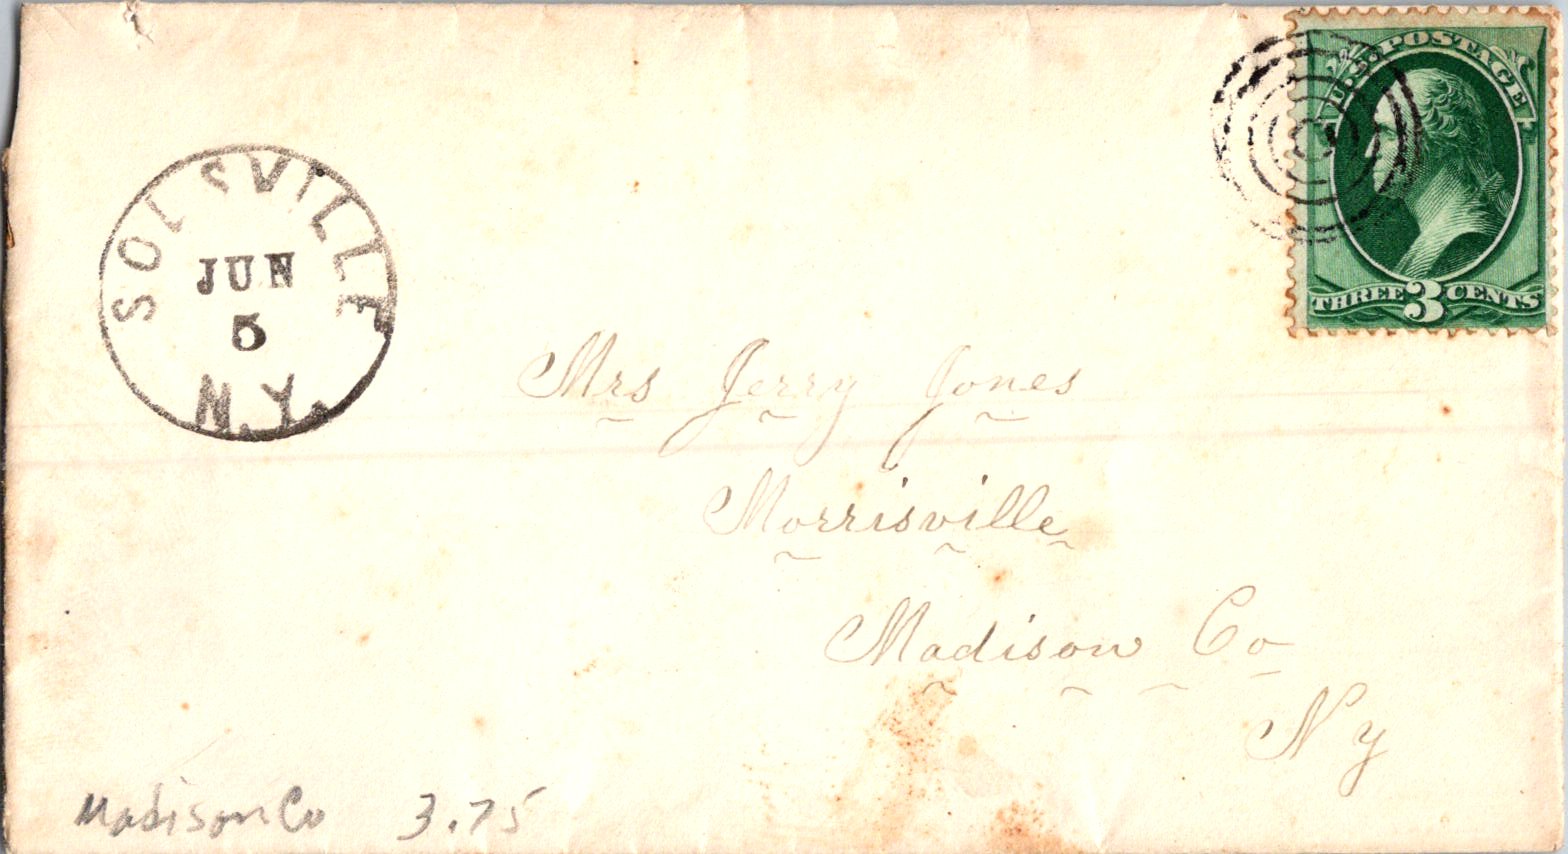 SOLSVILLE
JUN
5
N.Y.
U.S. POSTAGE
THREE 3 CENTS
Mrs Jerry Jones
Morrisville
Madison Co
Ny
Madison Co 3.75